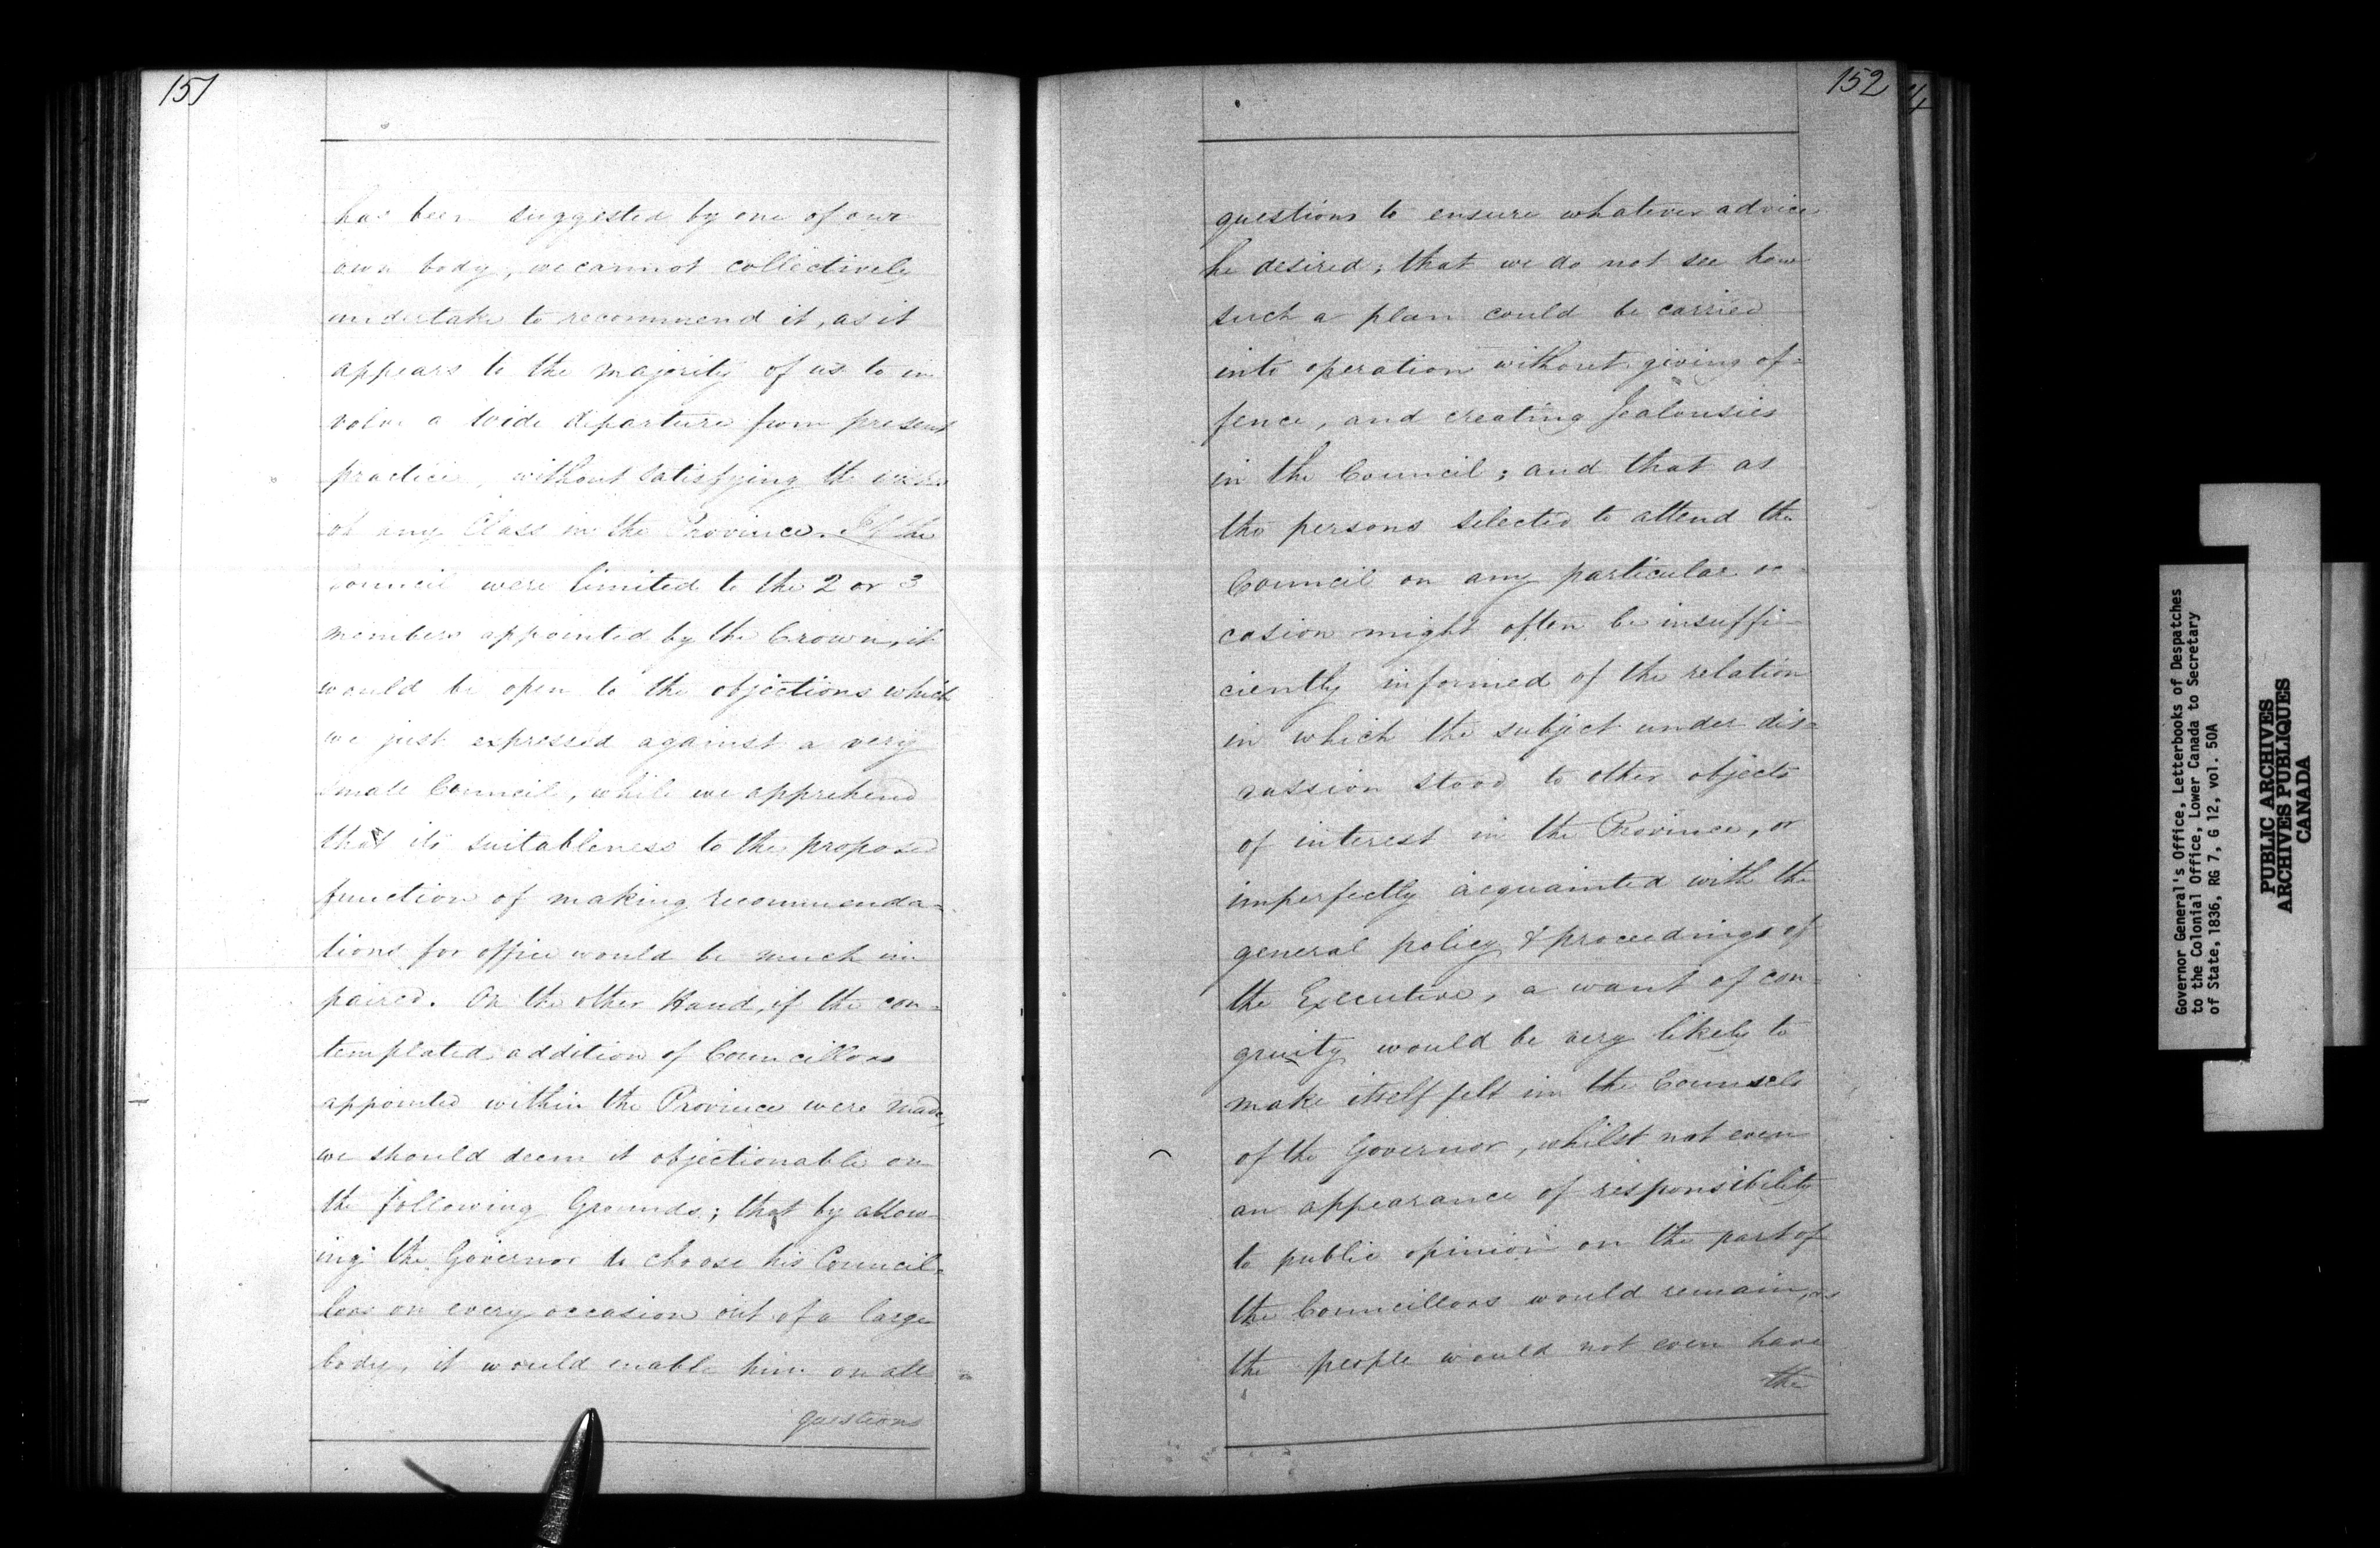 151
has been suggested by one of our
own body, we cannot collectively
undertake to recommend it, as it
appears to the majority of us to in
volve a wide departure from present
practice, without satisfying the wishes
of any Class in the Province. If the
Council were limited to the 2 or 3
members appointed by the Crown, it
would be open to the objections which
we just expressed against a very
small Council, while we apprehend
that its suitableness to the proposed
function of making recommenda=
tions for office would be much im
paired. On the other Hand, if the con=
templated addition of Councillors
appointed within the Province were made,
we should deem it objectionable on
the following Grounds; that by allow
ing the Governor to choose his Council=
lors on every occasion out of a large
body, it would enable him on all
questions
152
questions to ensure whatever advice
he desired; that we do not see how
such a plan could be carried
into operation without giving of=
fence, and creating Jealousies
in the Council; and that as
the persons selected to attend the
Council on any particular oc
casion might often be insuffi-
ciently informed of the relation
in which the subject under dis=
cussion stood to other objects
of interest in the Province, or
imperfectly acquainted with the
general policy & proceedings of
the Executive, a want of con=
gruity would be very likely to
make itself felt in the Counsels
of the Governor, whilst not even
an appearance of responsibility
to public opinion on the part of
the Councillors would remain, as
the people would not even have
the
Governor General's Office, Letterbooks of Despatches
to the Colonial Office, Lower Canada to Secretary
of State, 1836, RG 7, G 12, vol. 50A
PUBLIC ARCHIVES
ARCHIVES PUBLIQUES
CANADA